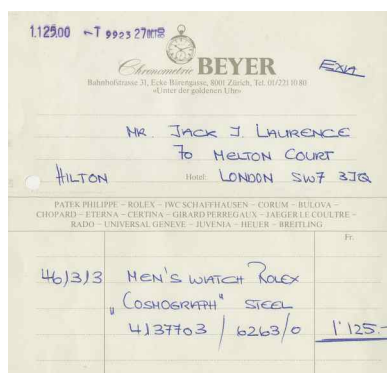 1.125.00 ←T 9923 27
Chronometrie BEYER
Exia
Bahnhofstrasse 31, Ecke Bärengasse, 8001 Zürich, Tel. 01/221 10 80
«Unter der goldenen Uhr»
MR. JACK J. LAURENCE
70 MELTON COURT
HILTON Hotel: LONDON SW7 3JQ
PATEK PHILIPPE – ROLEX – IWC SCHAFFHAUSEN – CORUM – BULOVA –
CHOPARD – ETERNA – CERTINA – GIRARD PERREGAUX – JAEGER LE COULTRE –
RADO – UNIVERSAL GENEVE – JUVENIA – HEUER – BREITLING
Fr.
46/3/3 MEN'S WATCH ROLEX
"COSMOGRAPH" STEEL
4137703 / 6263/0 1'125.-